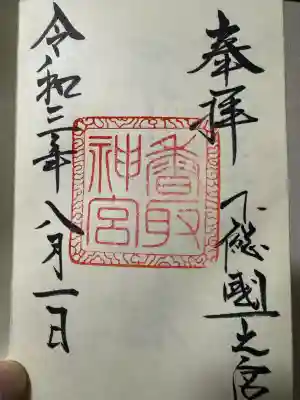 奉拝
下総國一之宮
香取
神宮
令和三年八月一日